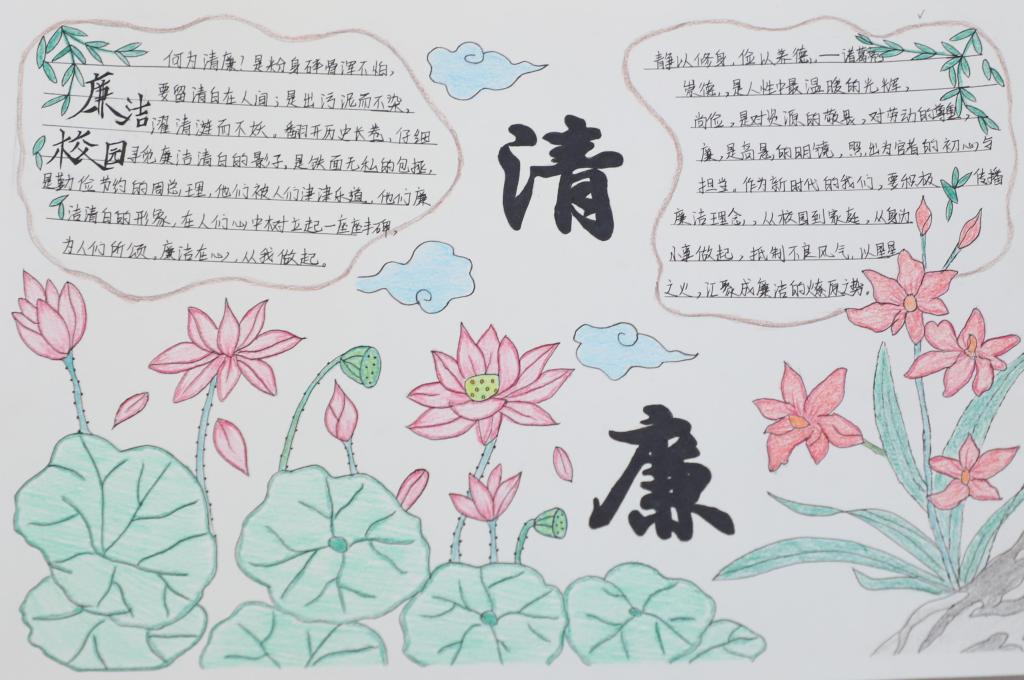 何为清廉？是粉身碎骨浑不怕，
要留清白在人间；是出污泥而不染，
濯清涟而不妖。翻开历史长卷，仔细
寻觅廉洁清白的影子，是铁面无私的包拯，
是勤俭节约的周总理，他们被人们津津乐道。他们廉
洁清白的形象，在人们心中树立起一座座丰碑，
为人们所颂。廉洁在心，从我做起。
廉洁
校园
清
廉
静以修身，俭以养德，——诸葛亮
崇德，是人性中最温暖的光辉，
尚俭，是对资源的敬畏，对劳动的尊重，
廉，是高悬的明镜，照出为官者的初心与
担当。作为新时代的我们，要积极传播
廉洁理念，从校园到家庭，从身边
小事做起，抵制不良风气，以星星
之火，汇聚成廉洁的燎原之势。